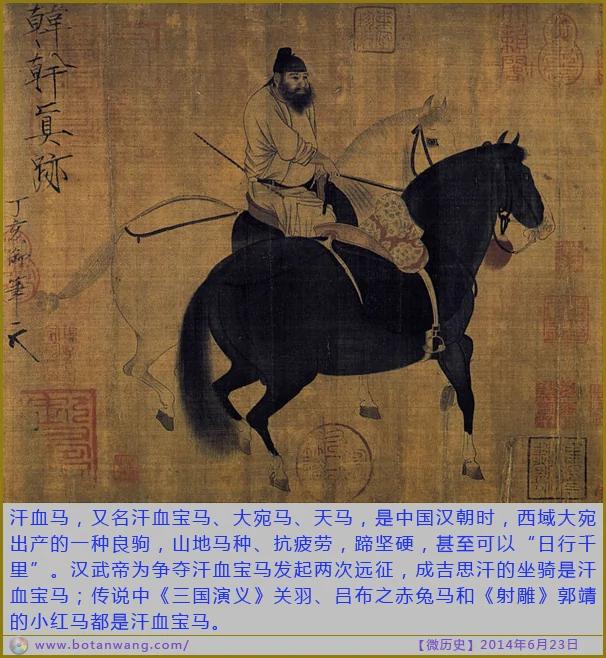 韓幹真跡
丁亥御筆
汗血马，又名汗血宝马、大宛马、天马，是中国汉朝时，西域大宛
出产的一种良驹，山地马种、抗疲劳，蹄坚硬，甚至可以“日行千
里”。汉武帝为争夺汗血宝马发起两次远征，成吉思汗的坐骑是汗
血宝马；传说中《三国演义》关羽、吕布之赤兔马和《射雕》郭靖
的小红马都是汗血宝马。
www.botanwang.com/
【微历史】2014年6月23日